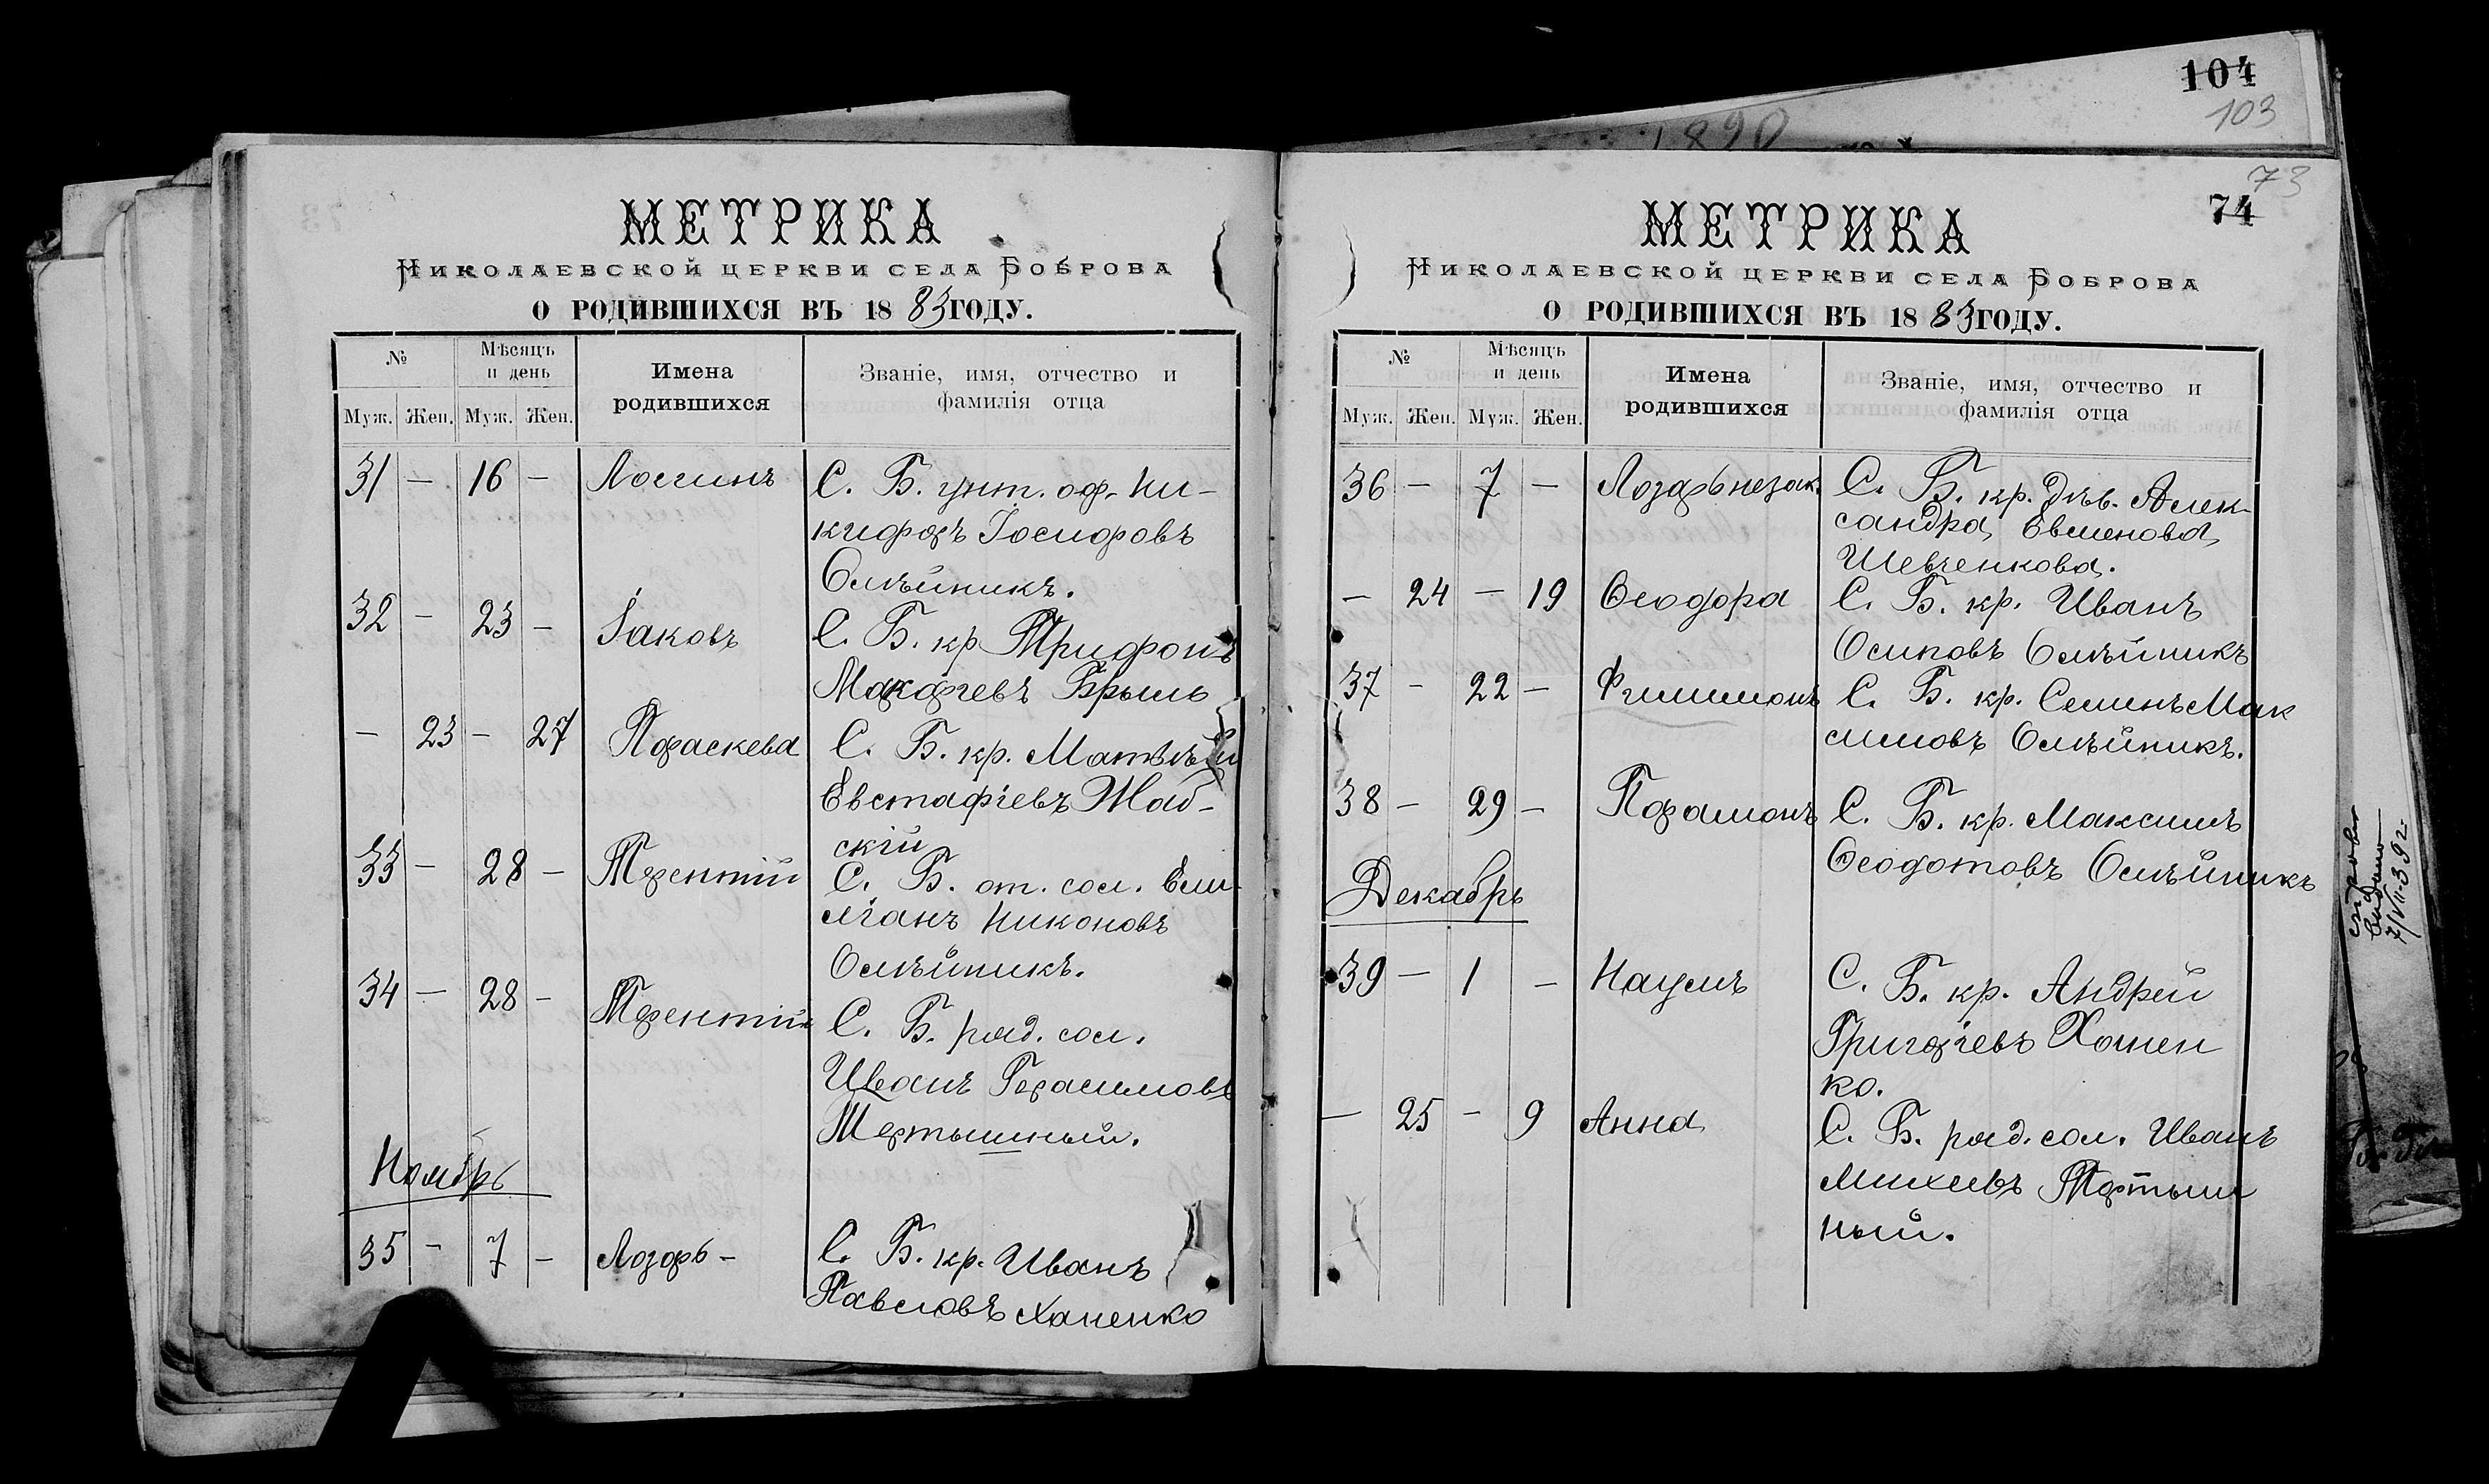 104
103
1890
МЕТРИКА
Николаевской церкви села Боброва
О РОДИВШИХСЯ ВЪ 1883 ГОДУ.
№ Мѣсяцъ и день Имена родившихся Званіе, имя, отчество и фамилія отца
Муж. Жен. Муж. Жен.
31 — 16 — Логгинъ С. Б. унт. оф. Ни-
кифоръ Іосифовъ
Олѣйникъ.
32 — 23 — Іаковъ С. Б. кр Трифонъ
Макаріевъ Брыль
— 23 — 27 Параскева С. Б. кр. Матѳѣй
Евстафіевъ Жаб-
скій
33 — 28 — Терентій С. Б. от. сол. Еми-
ліанъ Никоновъ
Олѣйникъ.
34 — 28 — Терентій С. Б. ряд. сол.
Иванъ Герасимовъ
Тертышный.
Ноябрь
35 — 7 — Лазарь — С. Б. кр. Иванъ
Павловъ Ханенко
73
74
МЕТРИКА
Николаевской церкви села Боброва
О РОДИВШИХСЯ ВЪ 1883 ГОДУ.
№ Мѣсяцъ и день Имена родившихся Званіе, имя, отчество и фамилія отца
Муж. Жен. Муж. Жен.
36 — 7 — Лазарь незак. С. Б. кр. дѣв. Алек-
сандра Евменова
Шевченкова.
— 24 — 19 Ѳеодора С. Б. кр. Иванъ
Осиповъ Олѣйникъ
37 — 22 — Филимонъ С. Б. кр. Семенъ Мак
симовъ Олѣйникъ.
38 — 29 — Парамонъ С. Б. кр. Максимъ
Ѳеодотовъ Олѣйникъ
Декабрь
39 — 1 — Наумъ С. Б. кр. Андрей
Григоріевъ Хомен
ко.
— 25 — 9 Анна С. Б. ряд. сол. Иванъ
Михеевъ Тертыш
ный.